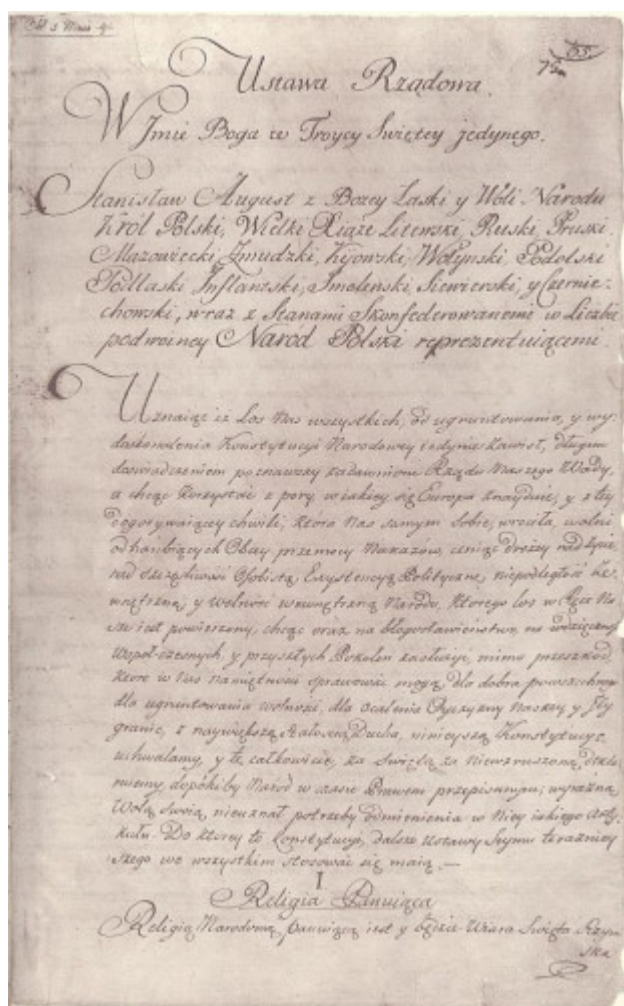 Dd 3 Maia
65.
75.
Ustawa Rządowa.
W Jmie Boga w Troycy Swiętey jedynego.
Stanisław August z Bozey Łaski y Woli Narodu
Król Polski, Wielki Xiąże Litewski, Ruski, Pruski,
Mazowiecki Zmudzki, Kijowski, Wołynski, Podolski
Podlaski Inflantski, Smolenski, Siewierski, y Czernie-
chowski, wraz z Stanami Skonfederowanemi w Liczbie
podwoiney Naród Polski reprezentuiącemi.
Uznaiąc iż Los Nas wszystkich, od ugruntowania, y wy
doskonalenia Konstytucyi Narodowey iedynie zawisł, długim
doswiadczeniem poznawszy zadawnione Rządu Naszego Wady,
a chcąc korzystać z pory, w iakiey się Europa znayduie, y z tey
dogorywaiącey chwili, która Nas samym Sobie, wrociła, wolni
od hanbiących Obcey przemocy Nakazów, ceniąc drozey nad życie,
nad szczęsliwość Osobistą, Exystencyą Polityczną, niepodległość ze-
wnętrzną, y wolność wewnętrzną Narodu, ktorego los w Ręce Na
sze iest powierzony, chcąc oraz na błogosławieństwo, na wdzięczność
Wspołczesnych, y przyszłych Pokolen zasłużyć, mimo przeszkód,
ktore w Nas namiętności sprawować mogą, dla dobra powszechnego
dla ugruntowania wolności, dla ocalenia Oyczyzny Naszey, y Jey
granic, z naywiększą stałoscią Ducha, ninieyszą Konstytucyę
uchwalamy, y tę całkowicie, za Swiętą, za Niewzruszoną, dekla
ruiemy, dopókiby Naród w czasie Prawem przepisanym, wyraźną
Wolą Swoią, nieuznał potrzeby odmienienia w Niey iakiego Arty-
kułu. Do ktorey to Konstytucyi, dalsze Ustawy Seymu teraźniey
szego we wszystkim stosować się maią. —
I
Religia Panuiąca
Religią Narodową panuiącą iest y będzie Wiara Swięta Rzym
ska